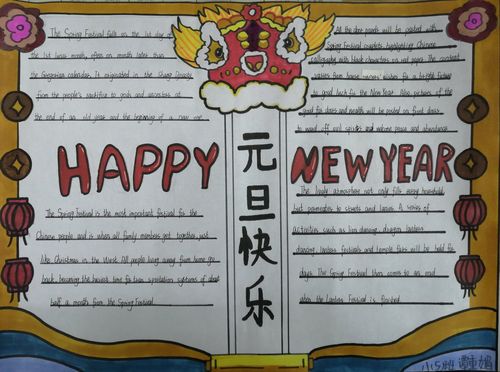 The Spring Festival falls on the 1st day of
the 1st lunar month, often one month later than
the Gregorian calendar. It originated in the Shang Dynasty
from the people's sacrifice to gods and ancestors at
the end of an old year and the beginning of a new one.
All the door panels will be pasted with
Spring Festival couplets, highlighting Chinese
calligraphy with black characters on red paper. The content
varies from house owners' wishes for a bright future
to good luck for the New Year. Also, pictures of the
god for doors and wealth will be posted on front doors
to ward off evil spirits and welcome peace and abundance.
HAPPY
元旦快乐
NEW YEAR
The Spring Festival is the most important festival for the
Chinese people and is when all family members get together, just
like Christmas in the West. All people living away from home go
back, becoming the busiest time for transportation systems of about
half a month from the Spring Festival.
The lively atmosphere not only fills every household,
but permeates to streets and lanes. A series of
activities such as lion dancing, dragon lantern
dancing, lantern festivals and temple fairs will be held for
days. The Spring Festival then comes to an end
when the Lantern Festival is finished.